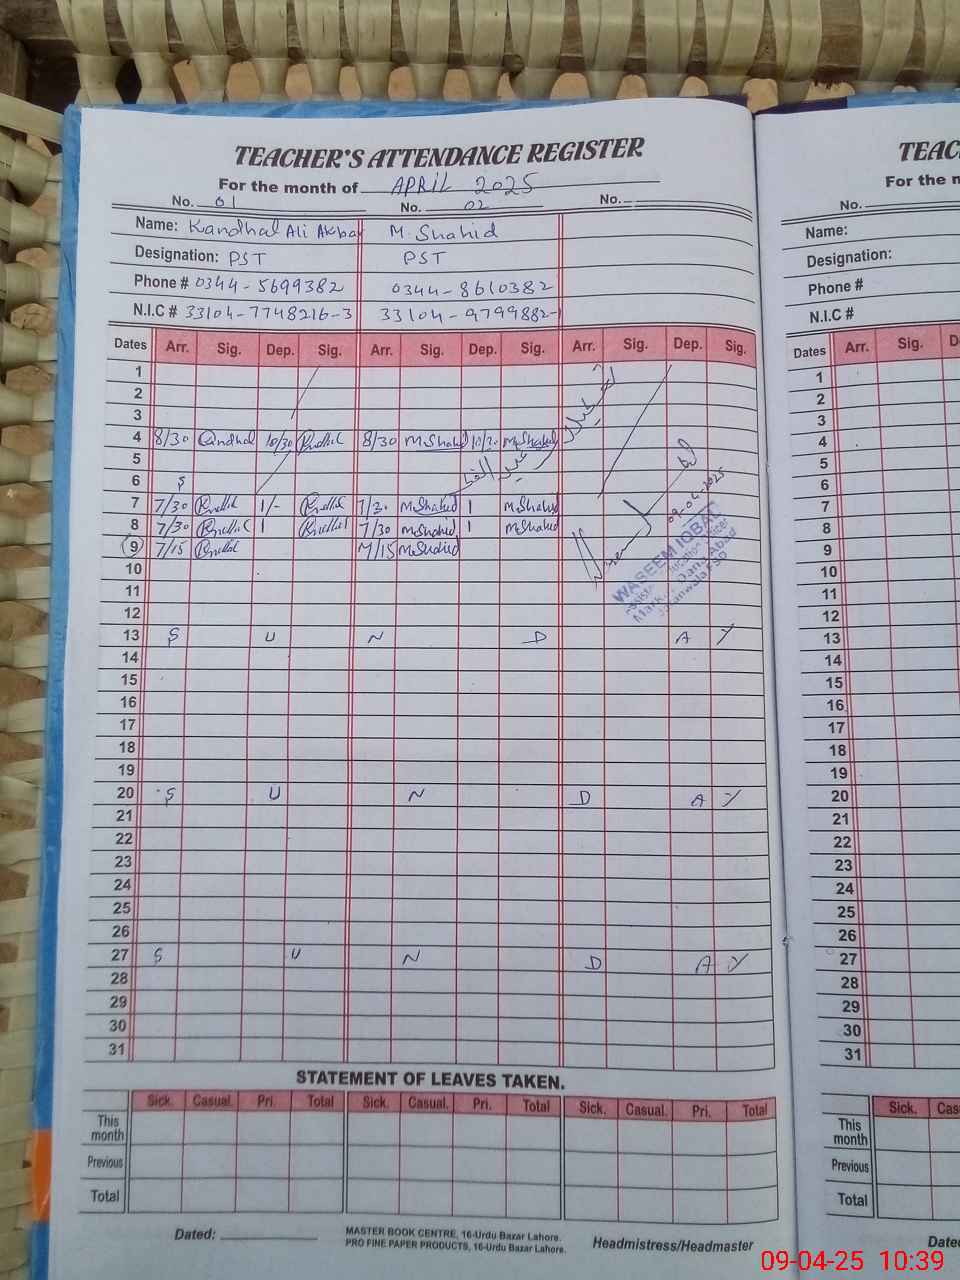 TEACHER'S ATTENDANCE REGISTER
For the month of APRIL 2025
No. 01 No. 02 No.
Name: Kandhal Ali Akbar M. Shahid
Designation: PST PST
Phone # 0344-5699382 0344-8610382
N.I.C # 33104-7748216-3 33104-9799882-1
Dates Arr. Sig. Dep. Sig. Arr. Sig. Dep. Sig. Arr. Sig. Dep. Sig.
1
2
3
4 8/30 10/30 8/30 M Shahid 10/30 M Shahid
5
6 S
عيد الفطر
7 7/30 1/- 7/30 M Shahid 1 M Shahid
8 7/30 1 7/30 M Shahid 1 M Shahid
9 7/15 7/15 M Shahid
09-04-2025
WASEEM IQBAL
10
11
12
13 S U N D A Y
14
15
16
17
18
19
20 S U N D A Y
21
22
23
24
25
26
27 S U N D A Y
28
29
30
31
STATEMENT OF LEAVES TAKEN.
Sick. Casual. Pri. Total Sick. Casual. Pri. Total Sick. Casual. Pri. Total
This month
Previous
Total
Dated:
MASTER BOOK CENTRE, 16-Urdu Bazar Lahore.
PRO FINE PAPER PRODUCTS, 16-Urdu Bazar Lahore.
Headmistress/Headmaster
TEAC
For the m
No.
Name:
Designation:
Phone #
N.I.C #
Dates Arr. Sig. D
1
2
3
4
5
6
7
8
9
10
11
12
13
14
15
16
17
18
19
20
21
22
23
24
25
26
27
28
29
30
31
Sick. Cas
This month
Previous
Total
Dated
09-04-25 10:39